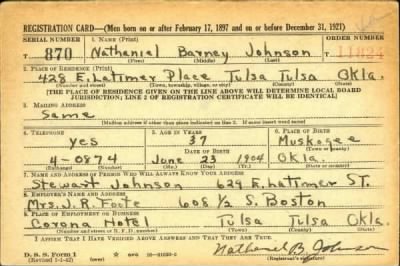 REGISTRATION CARD—(Men born on or after February 17, 1897 and on or before December 31, 1921)
SERIAL NUMBER 1. NAME (Print) ORDER NUMBER
870 Nathaniel Barney Johnson 11024
(First) (Middle) (Last)
2. PLACE OF RESIDENCE (Print)
428 E. Latimer Place Tulsa Tulsa Okla.
(Number and street) (Town, township, village, or city) (County) (State)
[THE PLACE OF RESIDENCE GIVEN ON THE LINE ABOVE WILL DETERMINE LOCAL BOARD
JURISDICTION; LINE 2 OF REGISTRATION CERTIFICATE WILL BE IDENTICAL]
3. MAILING ADDRESS
Same
[Mailing address if other than place indicated on line 2. If same insert word same]
4. TELEPHONE 5. AGE IN YEARS 6. PLACE OF BIRTH
yes 37 Muskogee
DATE OF BIRTH (Town or county)
4-0874 June 23 1904 Okla.
(Exchange) (Number) (Mo.) (Day) (Yr.) (State or country)
7. NAME AND ADDRESS OF PERSON WHO WILL ALWAYS KNOW YOUR ADDRESS
Stewart Johnson 629 E. Latimer ST.
8. EMPLOYER'S NAME AND ADDRESS
Mrs. J. R. Foote 608 1/2 S. Boston
9. PLACE OF EMPLOYMENT OR BUSINESS
Corona Hotel Tulsa Tulsa Okla.
(Number and street or R. F. D. number) (Town) (County) (State)
I AFFIRM THAT I HAVE VERIFIED ABOVE ANSWERS AND THAT THEY ARE TRUE.
D. S. S. Form 1 Nathaniel B. Johnson
(Revised 1-1-42) (over) (Registrant's signature)